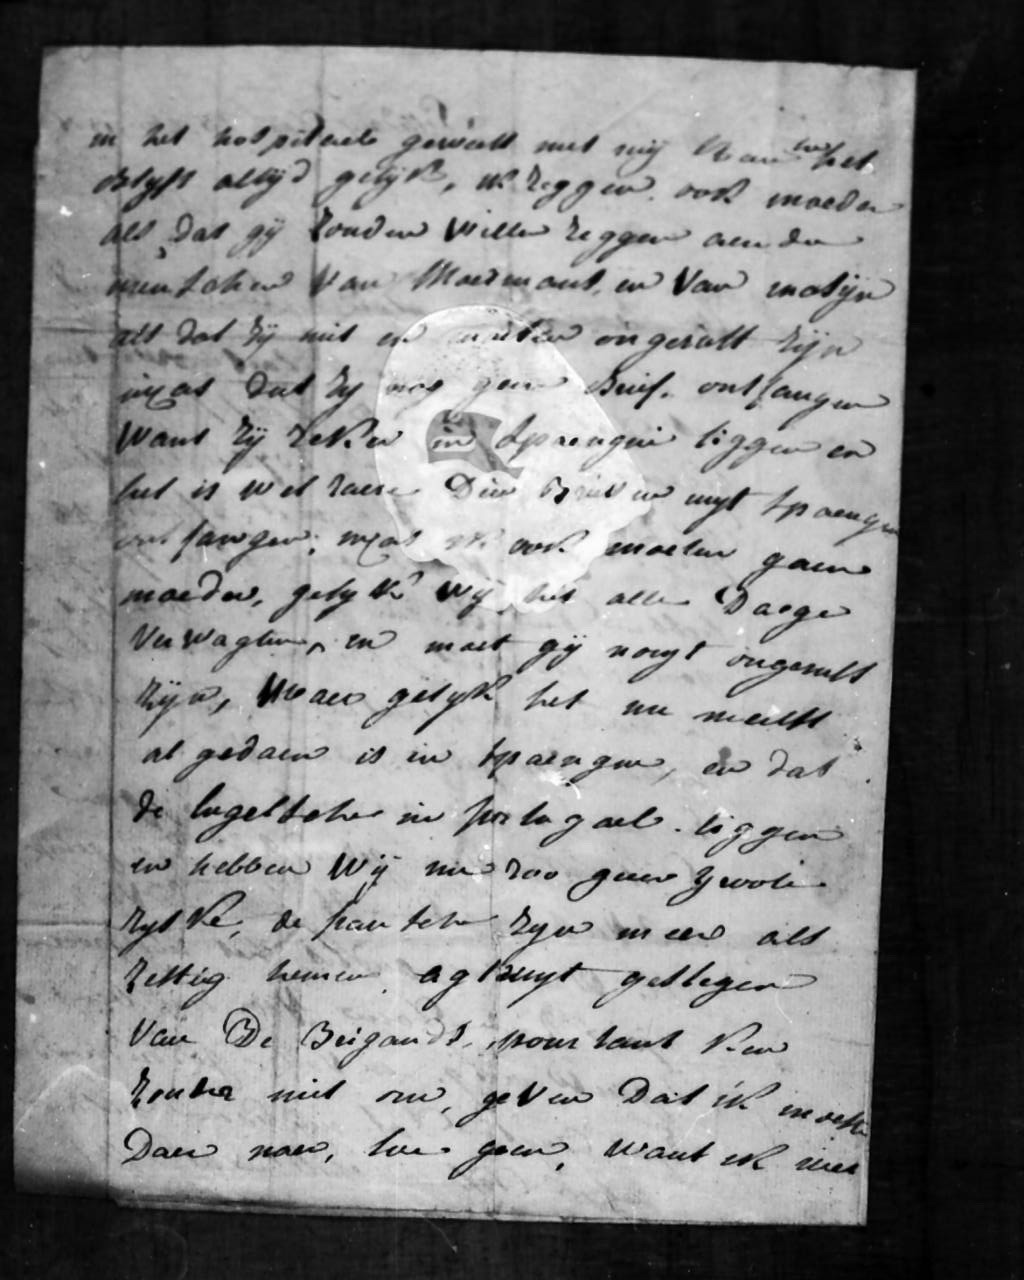 in het hospitaele geweest met mij want het
blyft altyd gelyk, ik zeggen ook moeder
als dat gij zouden willen zeggen aen de
menschen van Moermout en van matijn
als dat zij niet en moeten ongerust zijn
dat zij nog geen Brief ontfangen
want zij zeker in Spaengien liggen en
het is wel raere Dien Brieven uyt Spaengen
ontfangen, ik ook moeten gaen
moeder, gelyk wij het alle Daege
verwagten, en moet gij noeyt ongerust
zijn, waer gelyk het nu meest
al gedaen is in Spaengien, en dat
de Ingelsche in portugael liggen
en hebben wij nu zoo geen
zyke, de fransche zyn meer als
zestig heuren agteruyt geslegen
van De Brigands, pourtant ken
zouder niet om geven Dat ik moeste
Daer naer toe gaen, want ik